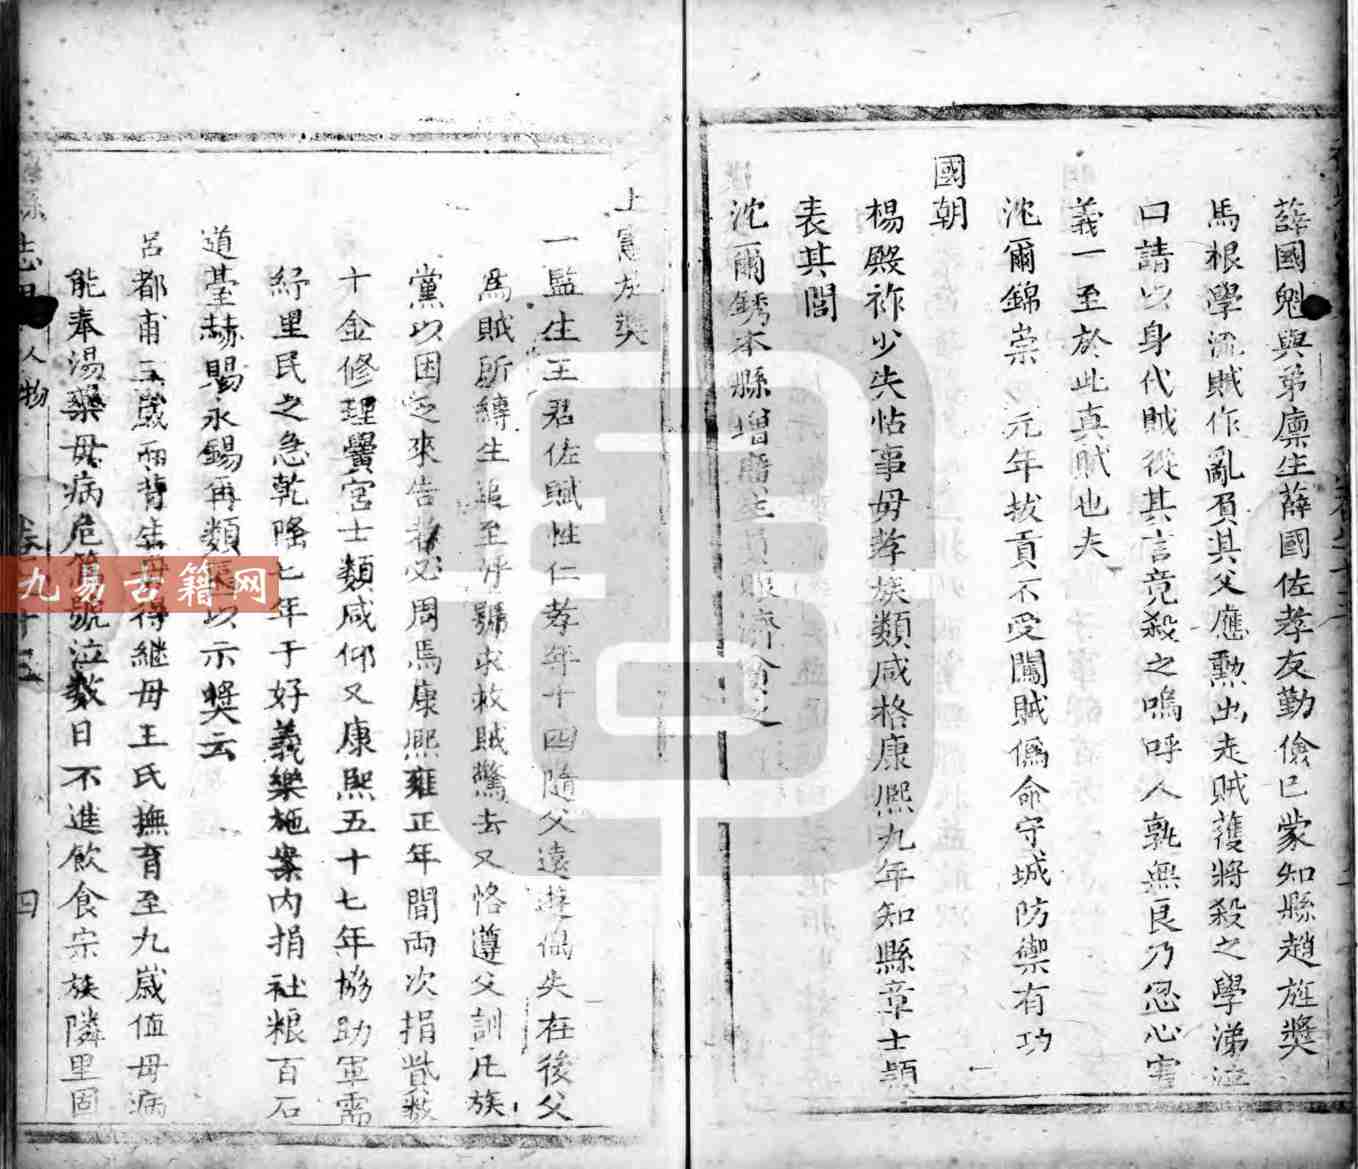 薛國魁與弟廩生薛國佐孝友勤儉已蒙知縣趙旌獎
馬根學流賊作亂負其父應勳出走賊獲將殺之學涕泣
口請以身代賊從其言竟殺之嗚呼人孰無良乃忍心害
義一至於此真賊也夫
沈爾錦崇 元年拔貢不受闖賊僞命守城防禦有功
國朝
楊殿祚少失怙事毋孝族類咸格康熙九年知縣章士
表其閭
沈爾銹本縣增廣生員賑濟貧乏
上憲旌獎
一監生王君佐賦性仁孝年十四隨父遠遊偶失在後父
爲賊所縛生追至呼號求救賊驚去又恪遵父訓凡族
黨以因乏來告者必周焉康熙雍正年間両次捐貲
十金修理黌宮士類咸仰又康熙五十七年協助軍需
紓里民之急乾隆七年于好義樂施案内捐社粮百石
道臺赫賜永錫爾類匾以示獎云
呂都甫三歲而背生毋得継毋王氏撫育至九歲值毋病
能奉湯藥毋病危篤號泣数日不進飲食宗族隣里固
縣志
人物
四
九易古籍网